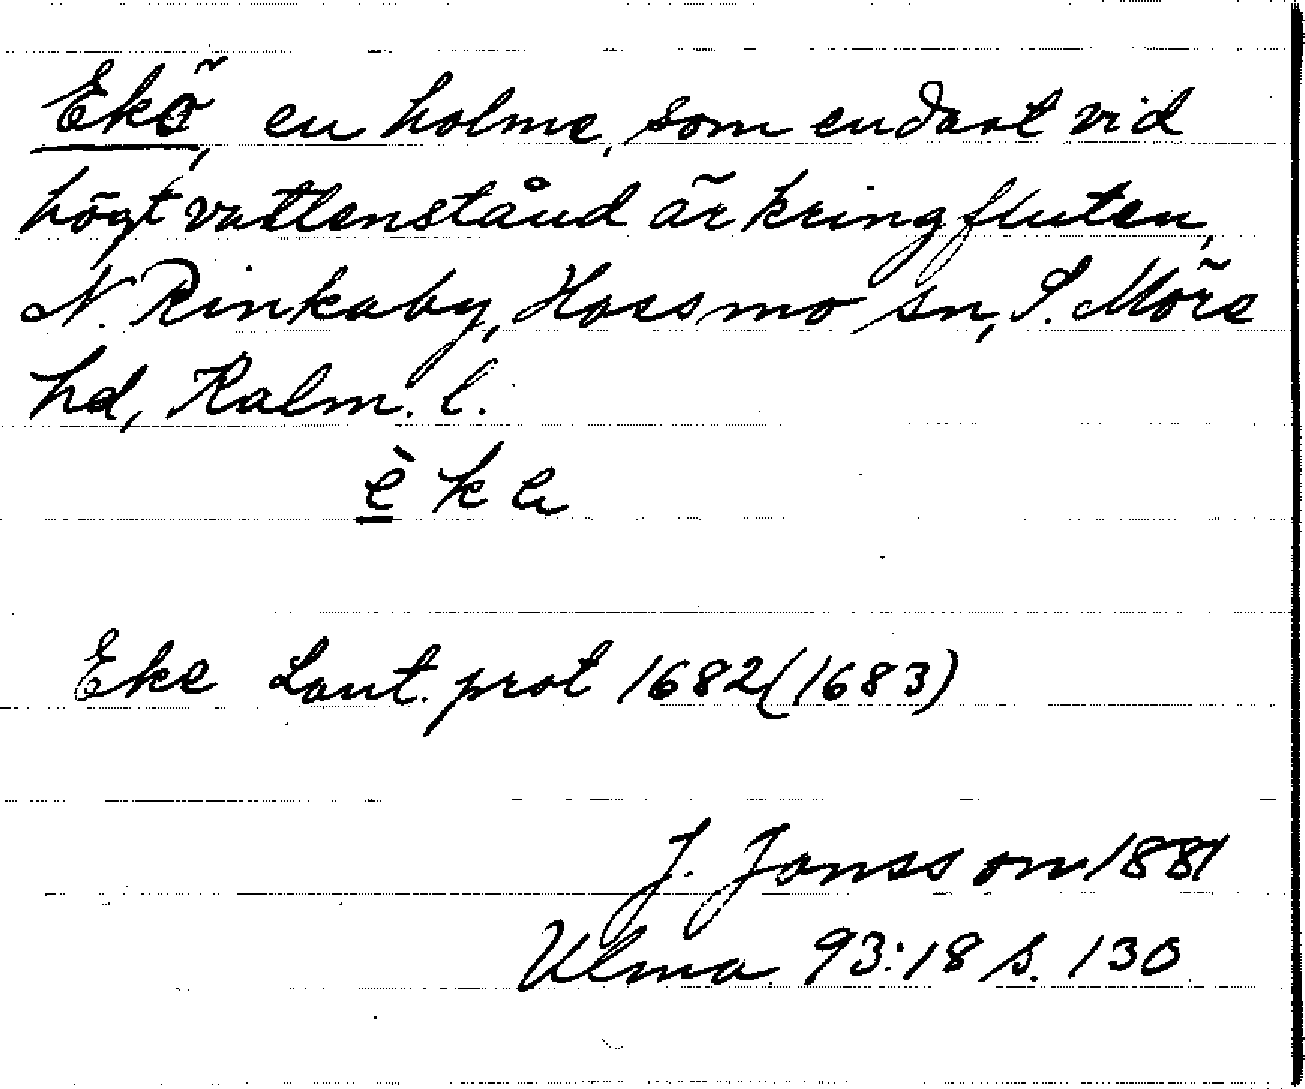 Ekö, en holme, som endast vid
högt vattenstånd är kringfluten,
N. Rinkaby, Hossmo sn, S. Möre
hd, Kalm. l.
è k e
Eke Lant. prot 1682(1683)
J. Jonsson 1881
Ulma 93:18 s. 130